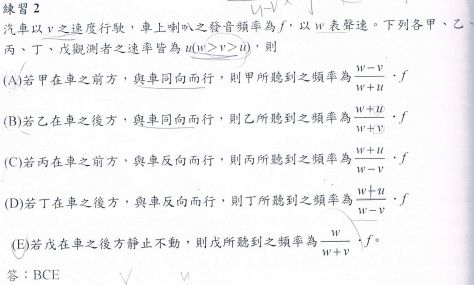 練習 2
汽車以 v 之速度行駛，車上喇叭之發音頻率為 f，以 w 表聲速。下列各甲、乙、
丙、丁、戊觀測者之速率皆為 u(w>v>u)，則
(A)若甲在車之前方，與車同向而行，則甲所聽到之頻率為 \frac{w-v}{w+u}·f
(B)若乙在車之後方，與車同向而行，則乙所聽到之頻率為 \frac{w+u}{w+v}·f
(C)若丙在車之前方，與車反向而行，則丙所聽到之頻率為 \frac{w+u}{w-v}·f
(D)若丁在車之後方，與車反向而行，則丁所聽到之頻率為 \frac{w+u}{w-v}·f
(E)若戊在車之後方靜止不動，則戊所聽到之頻率為 \frac{w}{w+v}·f。
答：BCE
v u